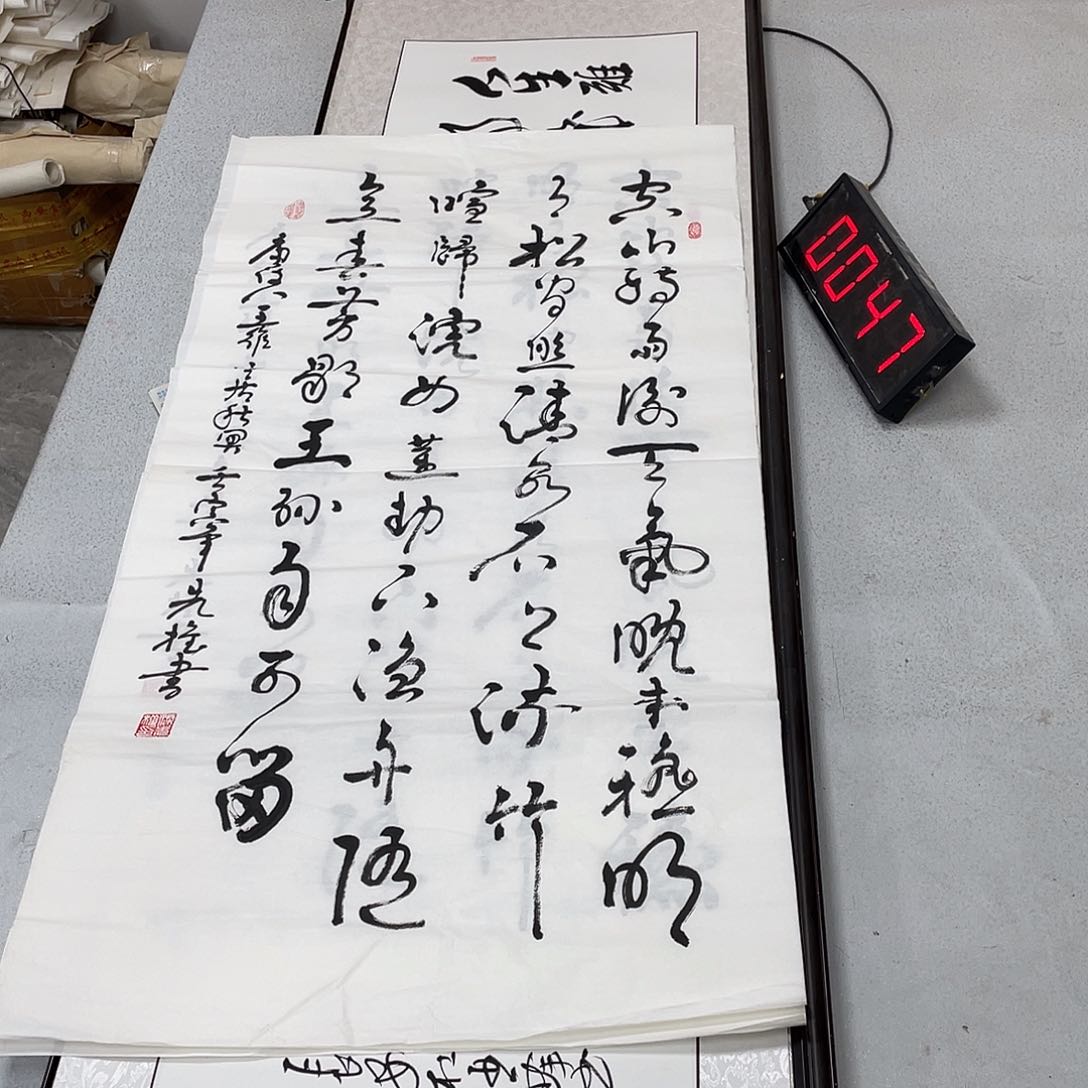 空山新雨後天氣晚来秋明
月松間照清泉石上流竹
喧歸浣女蓮動下漁舟隨
意春芳歇王孫自可留
唐詩人王維山居秋暝壬寅年書
0047